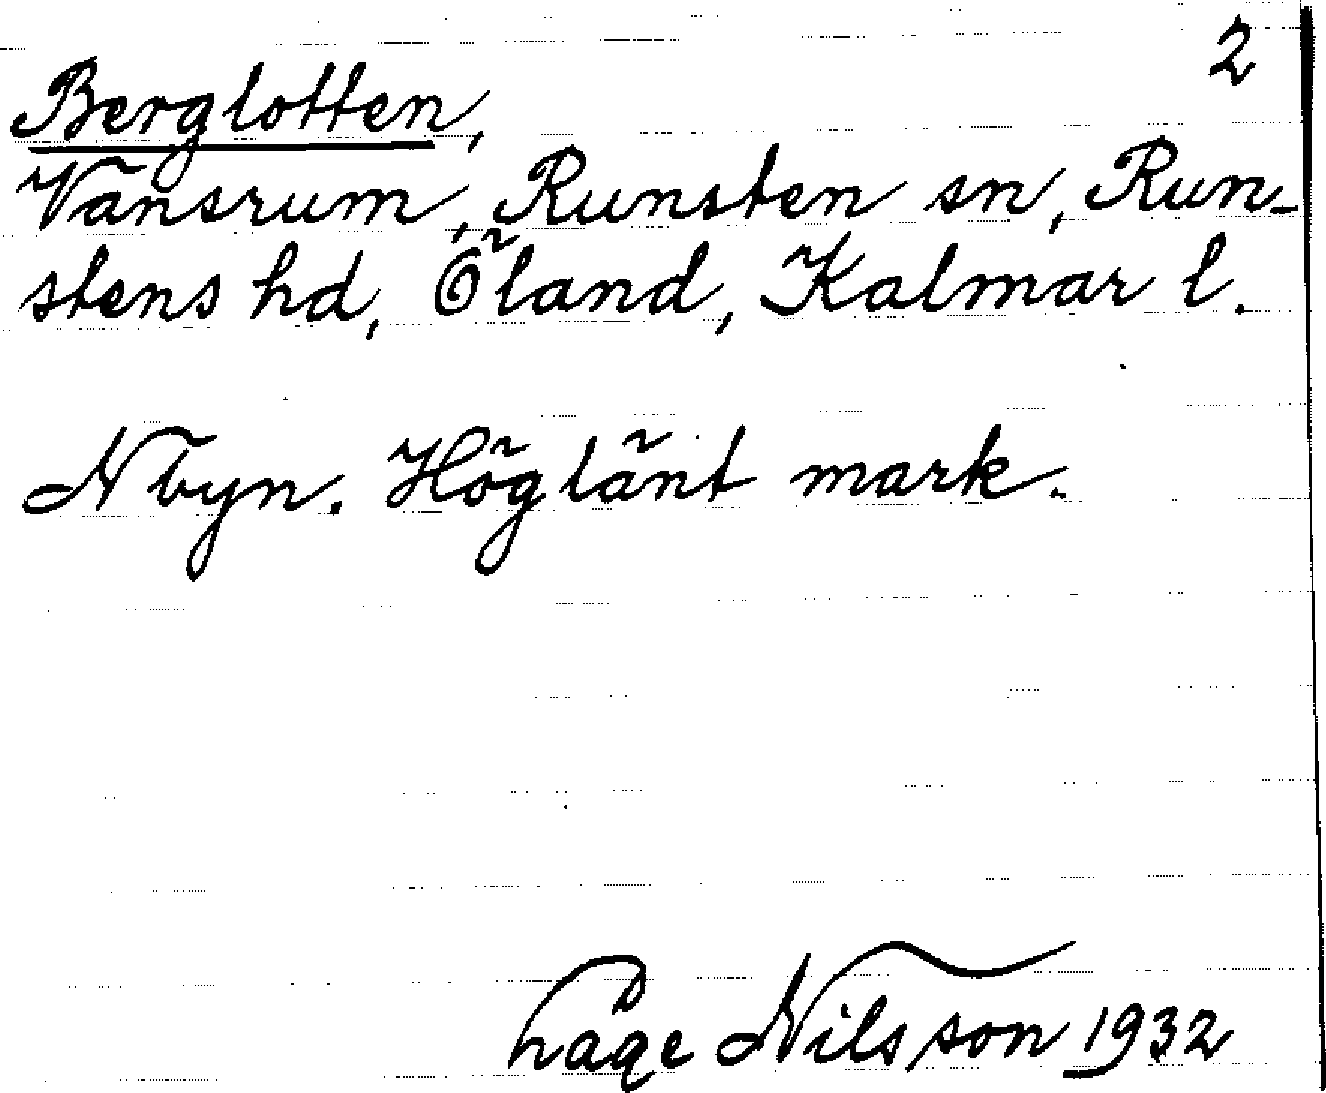 2
Berglotten,
Vansrum, Runsten sn, Run-
stens hd, Öland, Kalmar l.
N byn. Höglänt mark.
Nilsson 1932